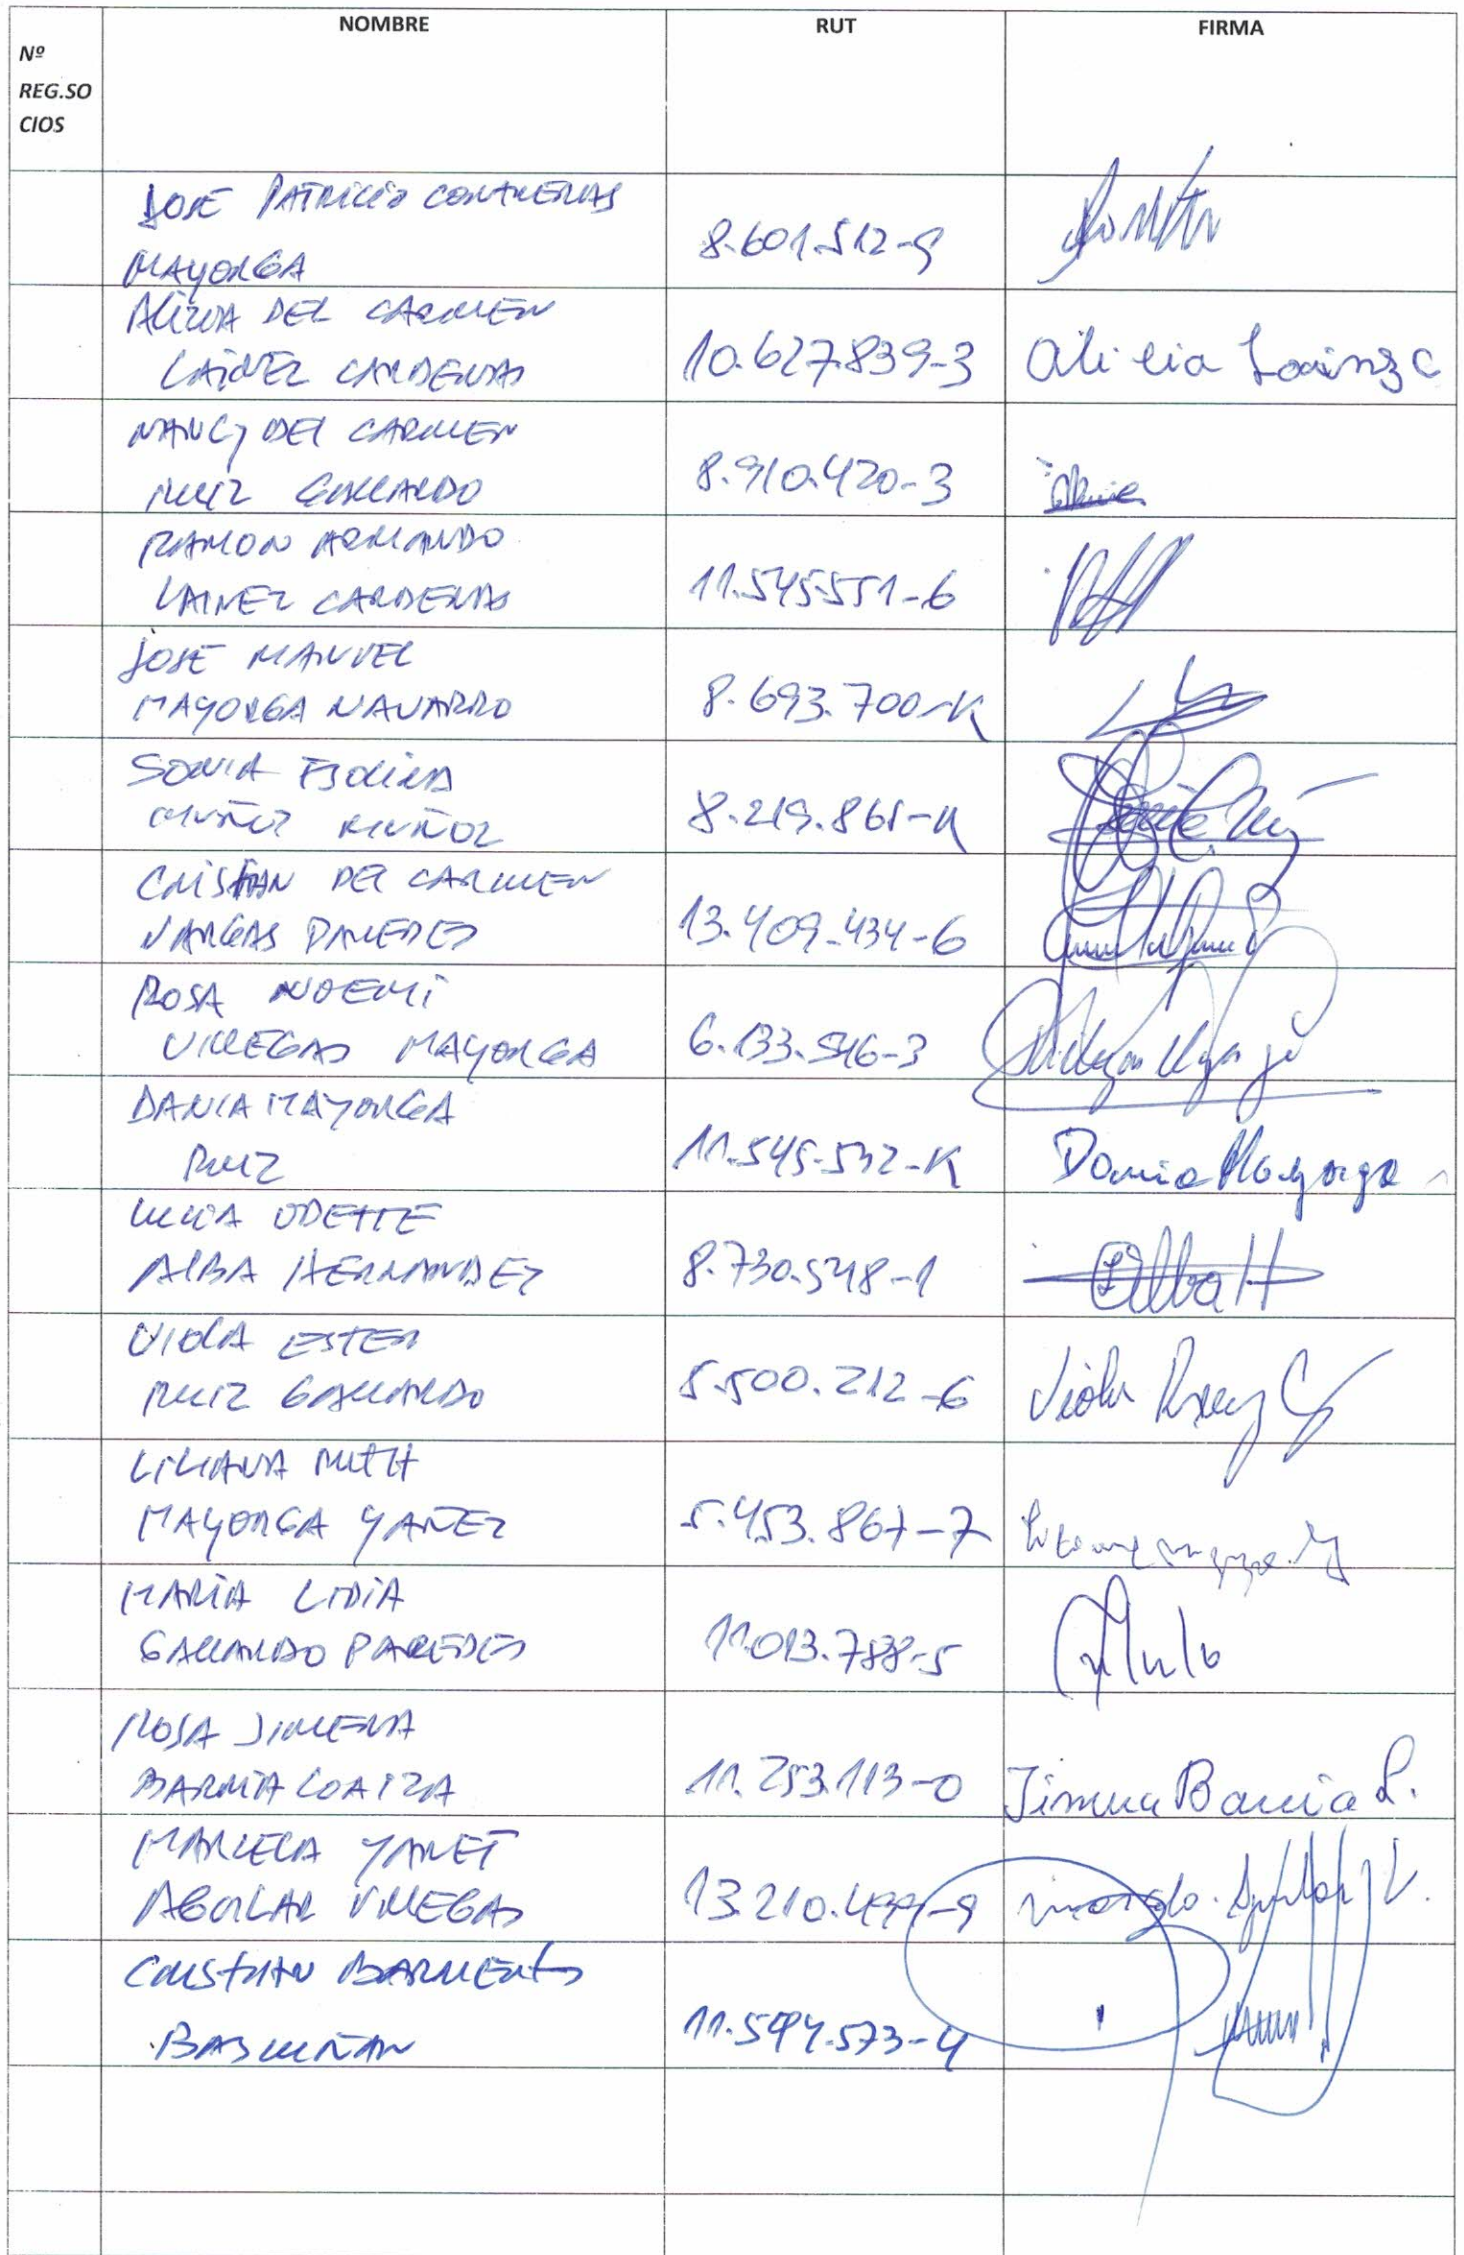 Nº
REG.SO
CIOS
NOMBRE
RUT
FIRMA
JOSE PATRICIO CONTRERAS
MAYORGA
8.601.512-9
ALICIA DEL CARMEN
LAINEZ CARDENAS
10.627.839-3
Alicia
NANCY DEL CARMEN
RUIZ GALLARDO
8.910.420-3
RAMON ARMANDO
LAINEZ CARDENAS
11.545551-6
JOSE MANUEL
MAYORGA NAVARRO
8.693.700-K
SONIA
MUÑOZ MUÑOZ
8.219.861-K
CRISTIAN DEL CARMEN
VARGAS PAREDES
13.409.434-6
ROSA NOEMI
VILLEGAS MAYORGA
6.133.546-3
DANIA MAYORGA
RUIZ
11.545.532-K
Dania Mayorga
LUCIA ODETTE
ALBA HERNANDEZ
8.730.548-1
Alba H
VIOLA ESTER
RUIZ GALLARDO
5.500.212-6
Viola Ruiz G
LILIANA RUTH
MAYORGA YAÑEZ
5.453.867-7
MARIA LIDIA
GALLARDO PAREDES
11.013.788-5
ROSA JIMENA
BARRIA LOAIZA
11.253.113-0
Jimena Barria L.
MARCELA YANET
AGUILAR VILLEGAS
13.210.499-9
CRISTIAN BARRIENTOS
BASCUÑAN
11.594.573-4